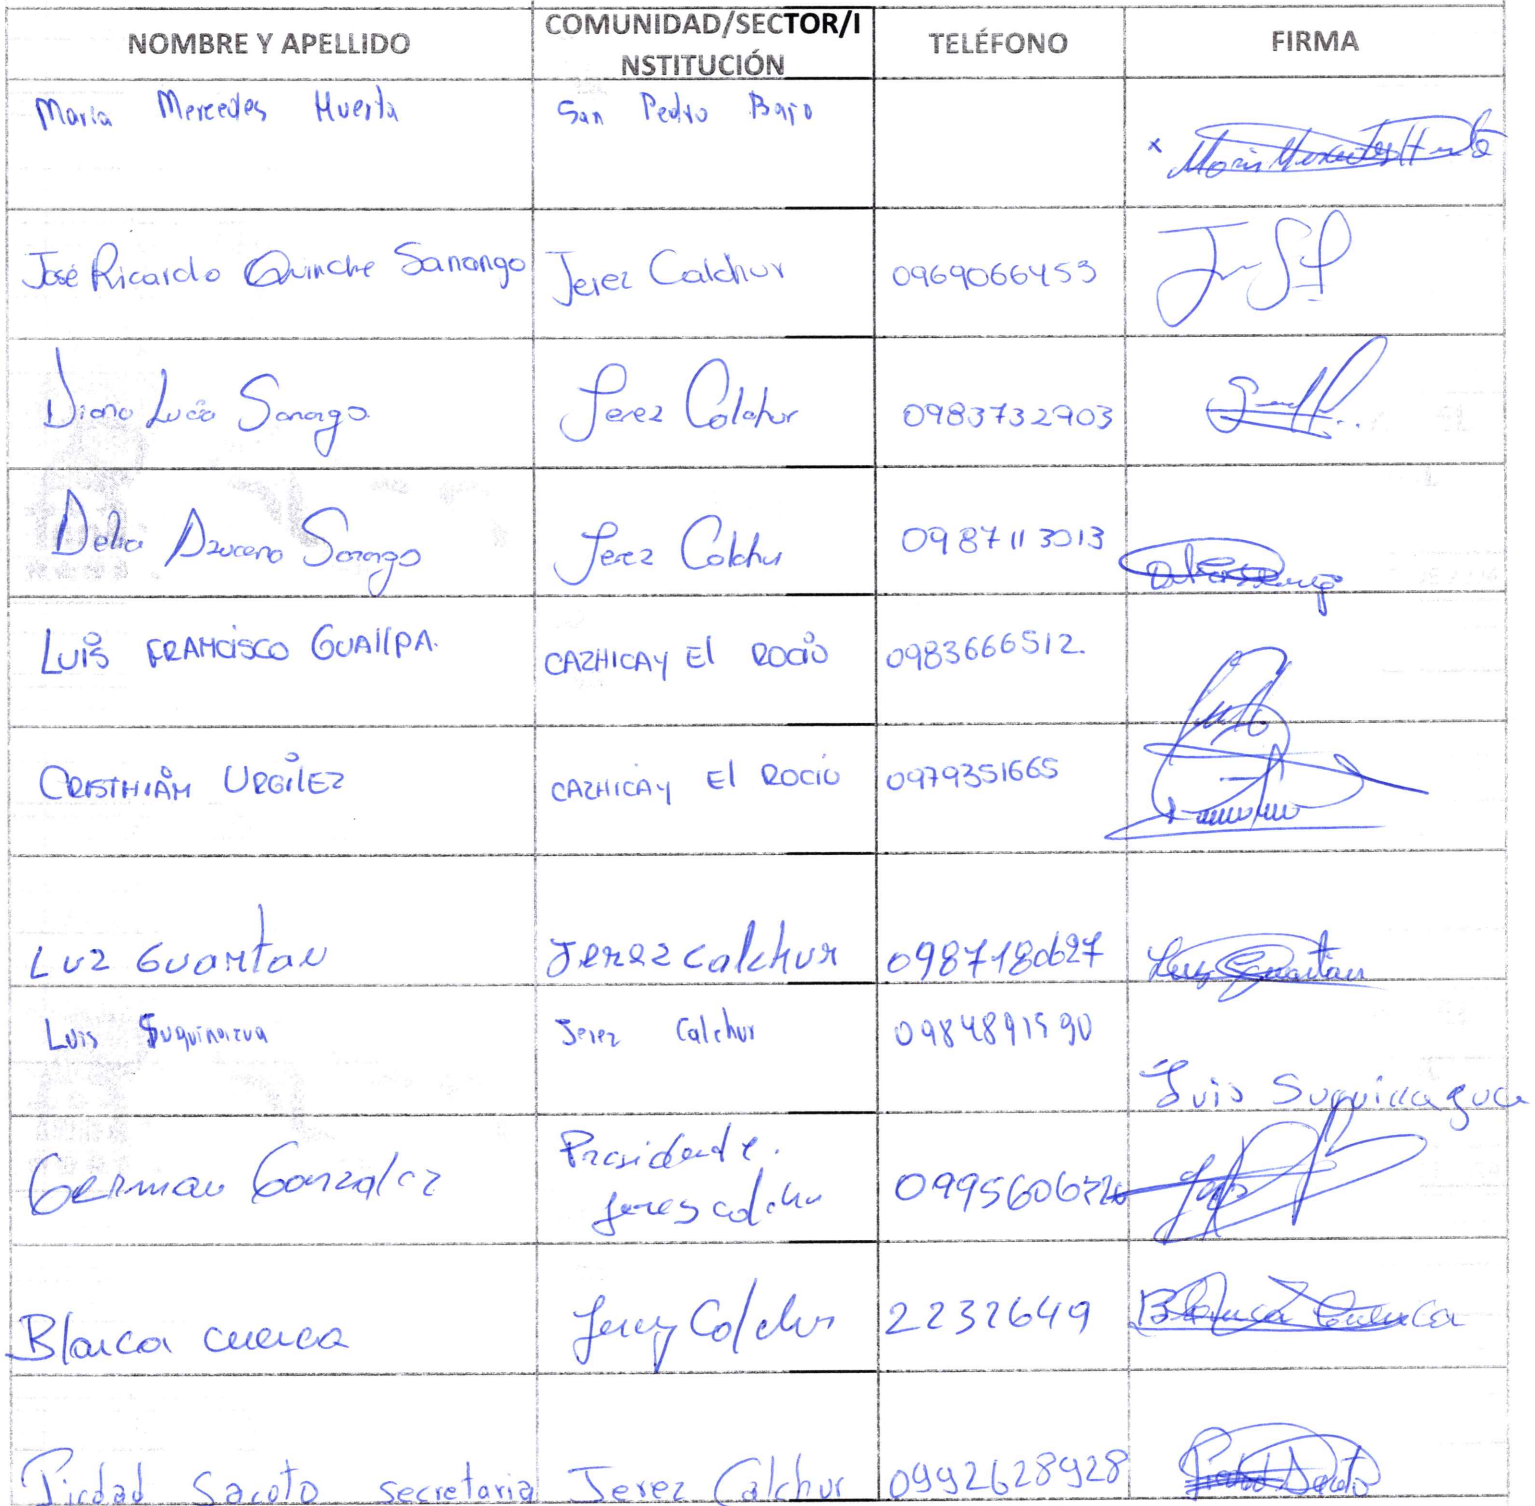 NOMBRE Y APELLIDO COMUNIDAD/SECTOR/I
NSTITUCIÓN TELÉFONO FIRMA
María Mercedes Huerta San Pedro Bajo Maria Mercedes Huerta
José Ricardo Quinche Sanango Jerez Calchur 0969066453
Diana Lucia Sanango Jerez Calchur 0983732903
Delia Azucena Sanango Jerez Calchur 0987113013
LUIS FRANCISCO GUAllPA. CAZHICAY El ROCIO 0983666512.
CRISTHIAN URGILEZ CAZHICAY El ROCIO 0979351665
Luz Guartan Jerez Calchur 0987180627 Luz Guartan
Luis Suquinagua Jerez Calchur 0984891590 Luis Suquinagua
German Gonzalez Presidente.
Jerez Calchur
Blanca cuenca Jerez Calchur 2232649 Blanca Cuenca
Piedad Sacoto secretaria Jerez Calchur 0992628928 Piedad Sacoto